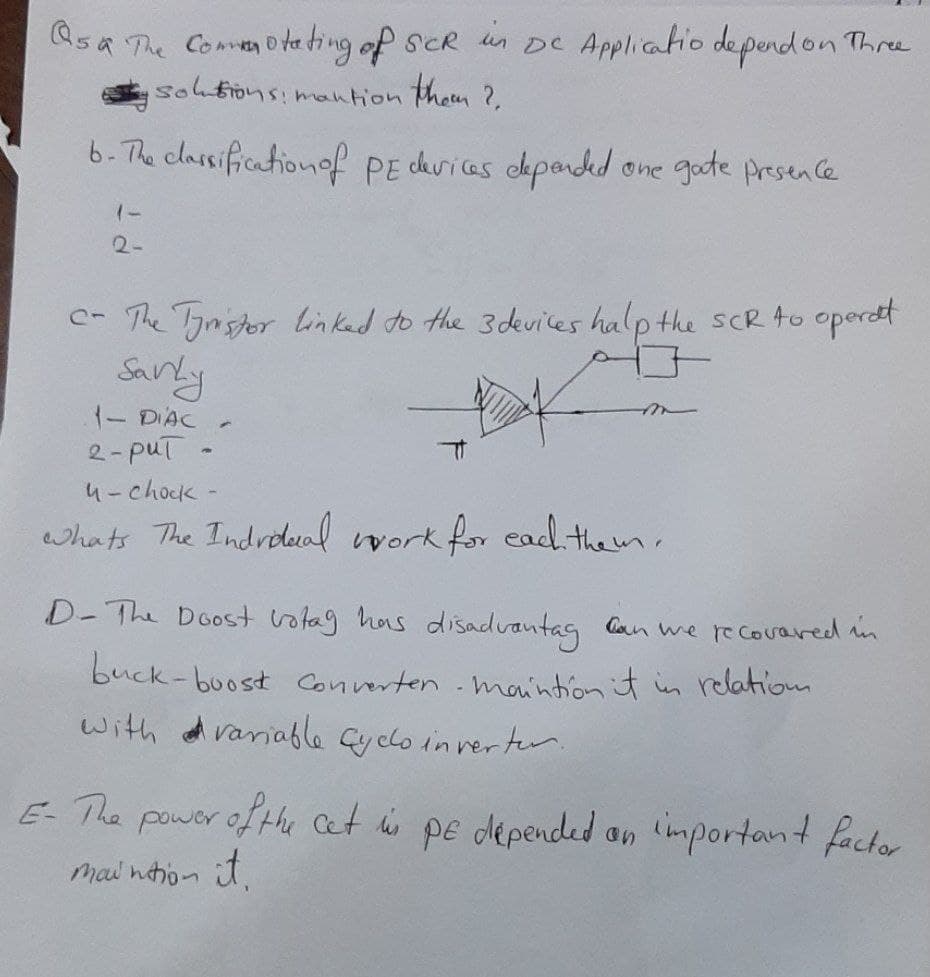 Q5 a The Commenotating of SCR in DC Applicatio depend on Three
solutions: mantion them ?.
b- The classification of PE devices depended one gate presence
1-
2-
C- The Tyristor linked to the 3 devices halp the SCR to operat
1- DiAC -
2- PUT -
4- chock -
whats The Indvidual work for each them.
D- The Doost votag has disadvantag Can we recovared in
buck-boost Converten - maintion it in relation
with variable Cyclo inverter.
E- The power of the Cct is PE depended on important factor
maintion it.